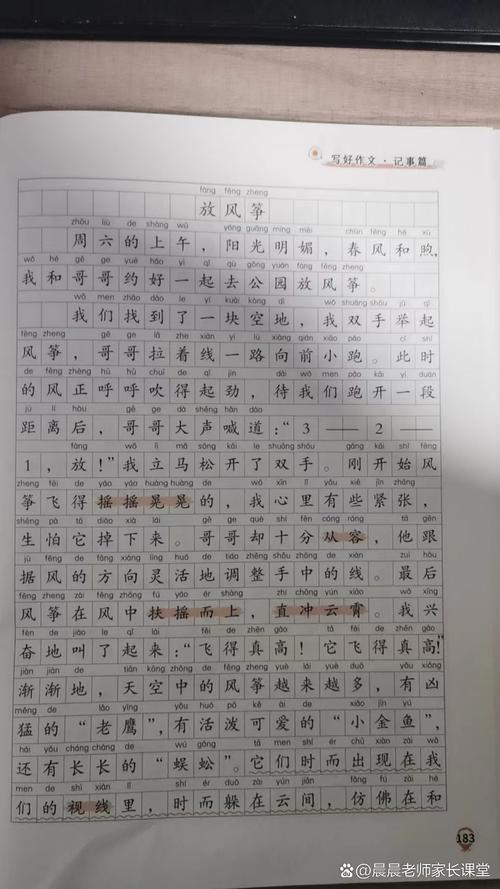 写好作文·记事篇
fàng fēng zheng
放风筝
zhōu liù de shàng wǔ yáng guāng míng mèi chūn fēng hé xù
周六的上午，阳光明媚，春风和煦，
wǒ hé gē ge yuē hǎo yì qǐ qù gōng yuán fàng fēng zheng
我和哥哥约好一起去公园放风筝。
wǒ men zhǎo dào le yí kuài kòng dì wǒ shuāng shǒu jǔ qǐ
我们找到了一块空地，我双手举起
fēng zheng gē ge lā zhe xiàn yí lù xiàng qián xiǎo pǎo cǐ shí
风筝，哥哥拉着线一路向前小跑。此时
de fēng zhèng hū hū chuī de qǐ jìn dài wǒ men pǎo kāi yí duàn
的风正呼呼吹得起劲，待我们跑开一段
jù lí hòu gē ge dà shēng hǎn dào
距离后，哥哥大声喊道：“3——2——
fàng wǒ lì mǎ sōng kāi le shuāng shǒu gāng kāi shǐ fēng
1，放！”我立马松开了双手。刚开始风
zheng fēi de yáo yáo huàng huàng de wǒ xīn lǐ yǒu xiē jǐn zhāng
筝飞得摇摇晃晃的，我心里有些紧张，
shēng pà tā diào xià lái gē ge què shí fēn cóng róng tā gēn
生怕它掉下来。哥哥却十分从容，他跟
jù fēng de fāng xiàng líng huó de tiáo zhěng shǒu zhōng de xiàn zuì hòu
据风的方向灵活地调整手中的线。最后
fēng zheng zài fēng zhōng fú yáo ér shàng zhí chōng yún xiāo wǒ xīng
风筝在风中扶摇而上，直冲云霄。我兴
fèn de jiào le qǐ lái fēi de zhēn gāo tā fēi de zhēn gāo
奋地叫了起来：“飞得真高！它飞得真高！”
jiàn jiàn de tiān kōng zhōng de fēng zheng yuè lái yuè duō yǒu xiōng
渐渐地，天空中的风筝越来越多，有凶
měng de lǎo yīng yǒu huó pō kě ài de xiǎo jīn yú
猛的“老鹰”，有活泼可爱的“小金鱼”，
hái yǒu cháng cháng de wú gōng tā men shí ér chū xiàn zài wǒ
还有长长的“蜈蚣”。它们时而出现在我
men de shì xiàn lǐ shí ér duǒ zài yún jiān fǎng fú zài hé
们的视线里，时而躲在云间，仿佛在和
183
@晨晨老师家长课堂